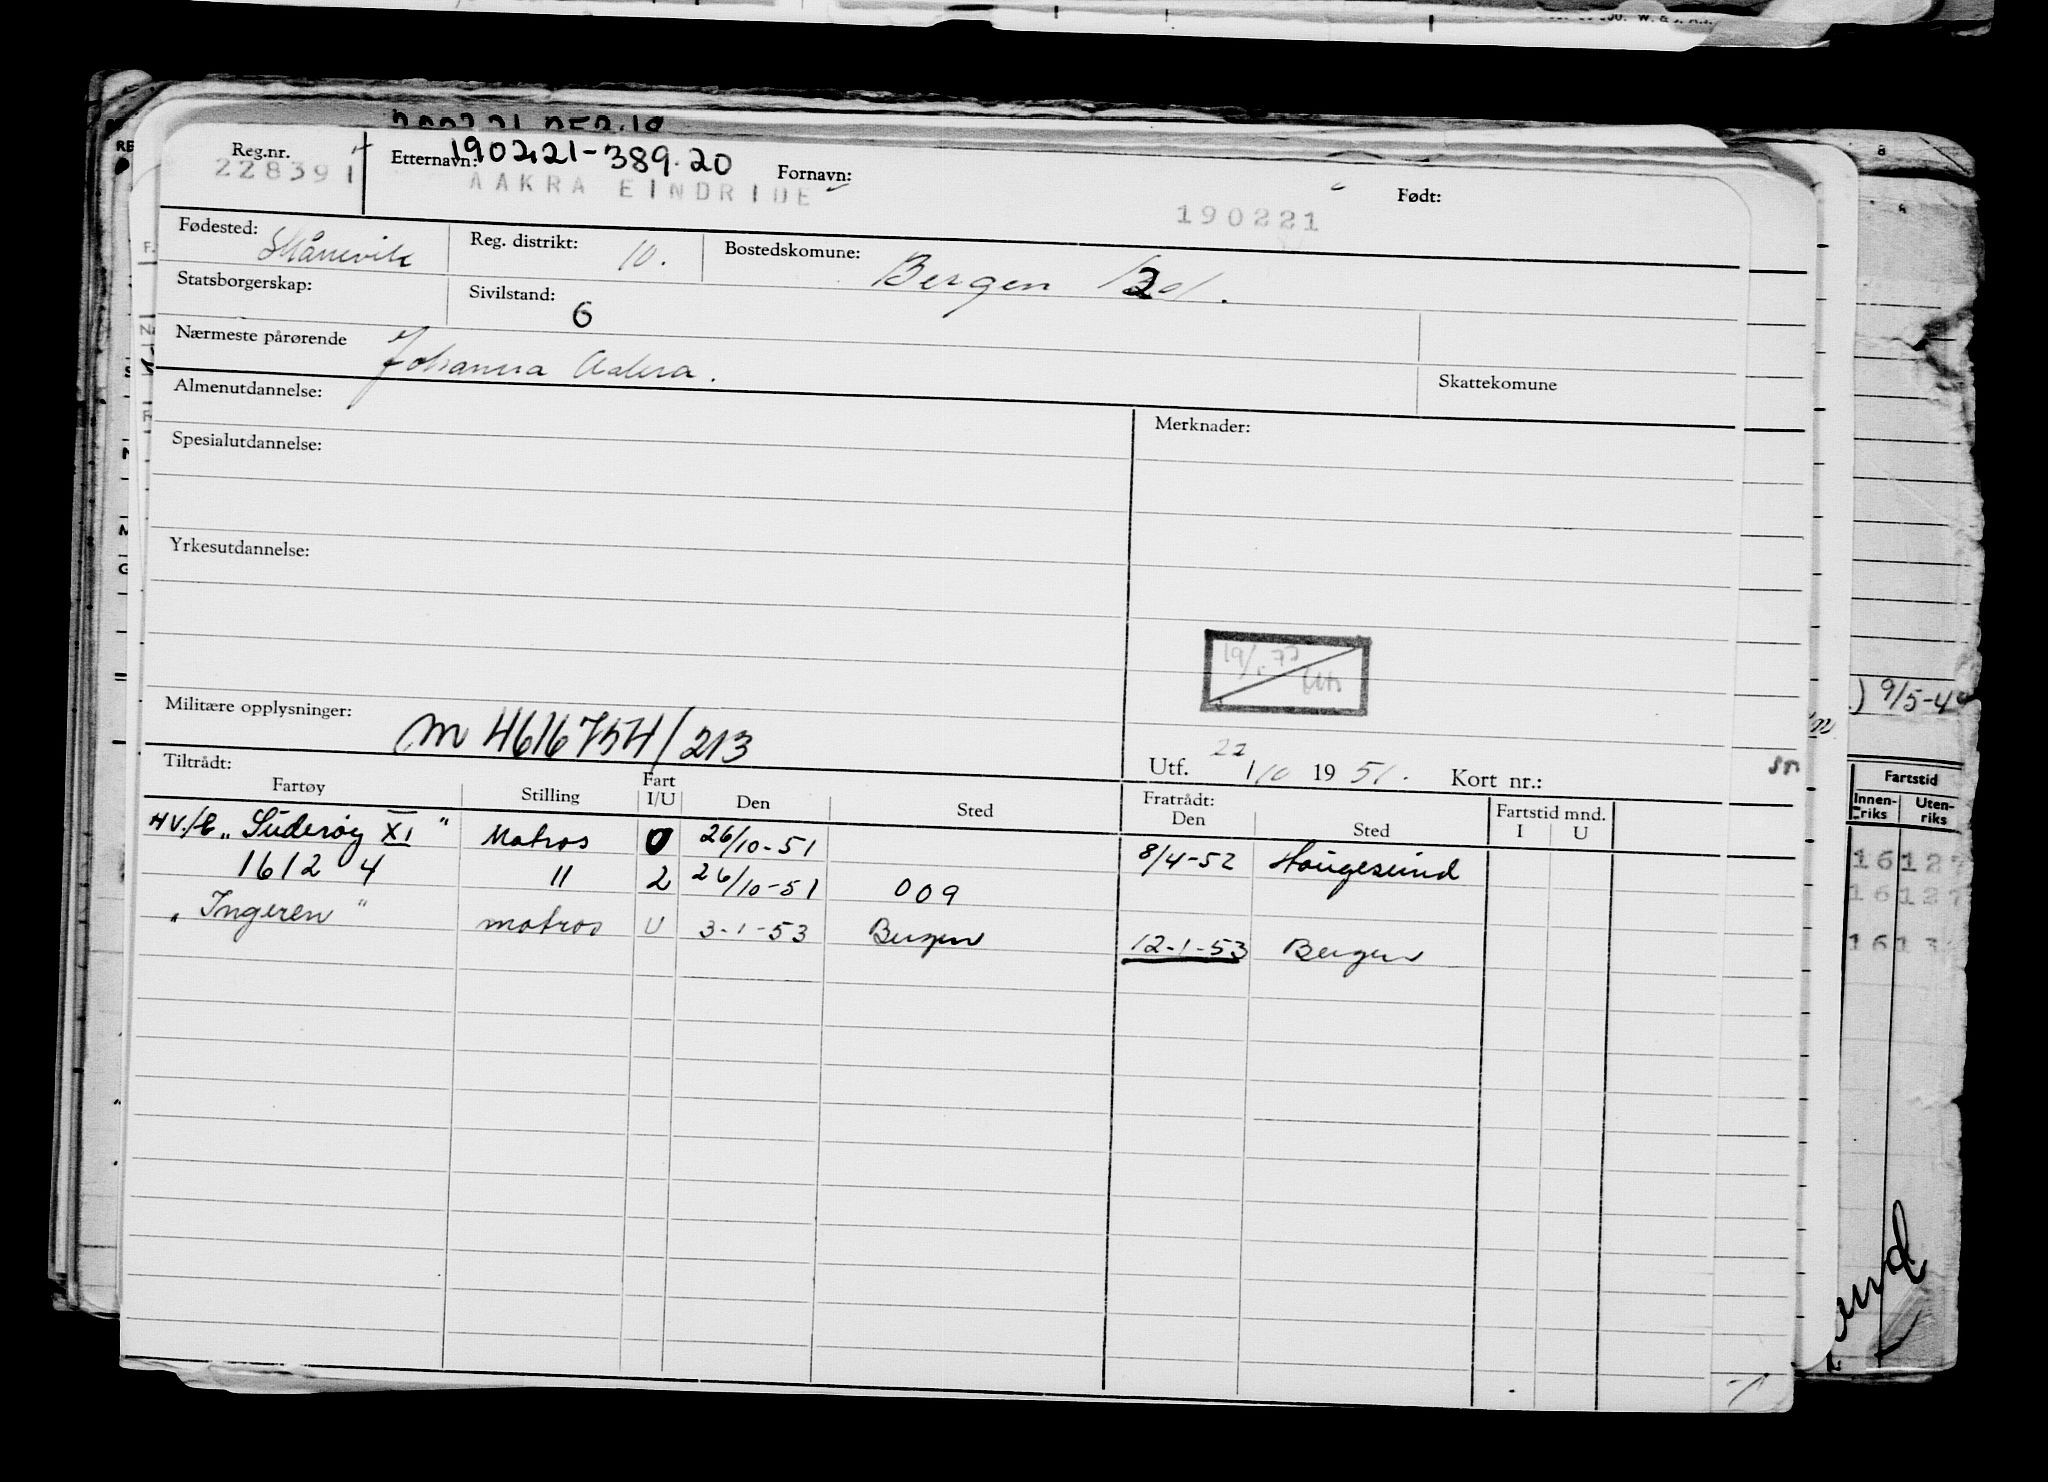 Reg.nr. 228391
Etternavn: 190221-389.20 Fornavn: Født:
AAKRA EINDRIDE 190221
Fødested: Skånevik Reg. distrikt: 10. Bostedskomune: Bergen
Statsborgerskap: Sivilstand: G
Nærmeste pårørende Johanna Aakra.
Skattekomune
Almenutdannelse: Merknader:
Spesialutdannelse:
Yrkesutdannelse:
Militære opplysninger: M 4616754/213
Utf. 22/10 1951. Kort nr.:
Tiltrådt: Fratrådt:
Fartøy Stilling Fart I/U Den Sted Den Sted Fartstid mnd. I U
HV./B „Suderøy XI" Matros U 26/10-51 8/4-52 Haugesund
1612 4 " 2 26/10-51 009
„Ingeren" matros U 3-1-53 Bergen 12-1-53 Bergen
9/5-4
Fartstid
Innenriks Utenriks
16127
16127
1613